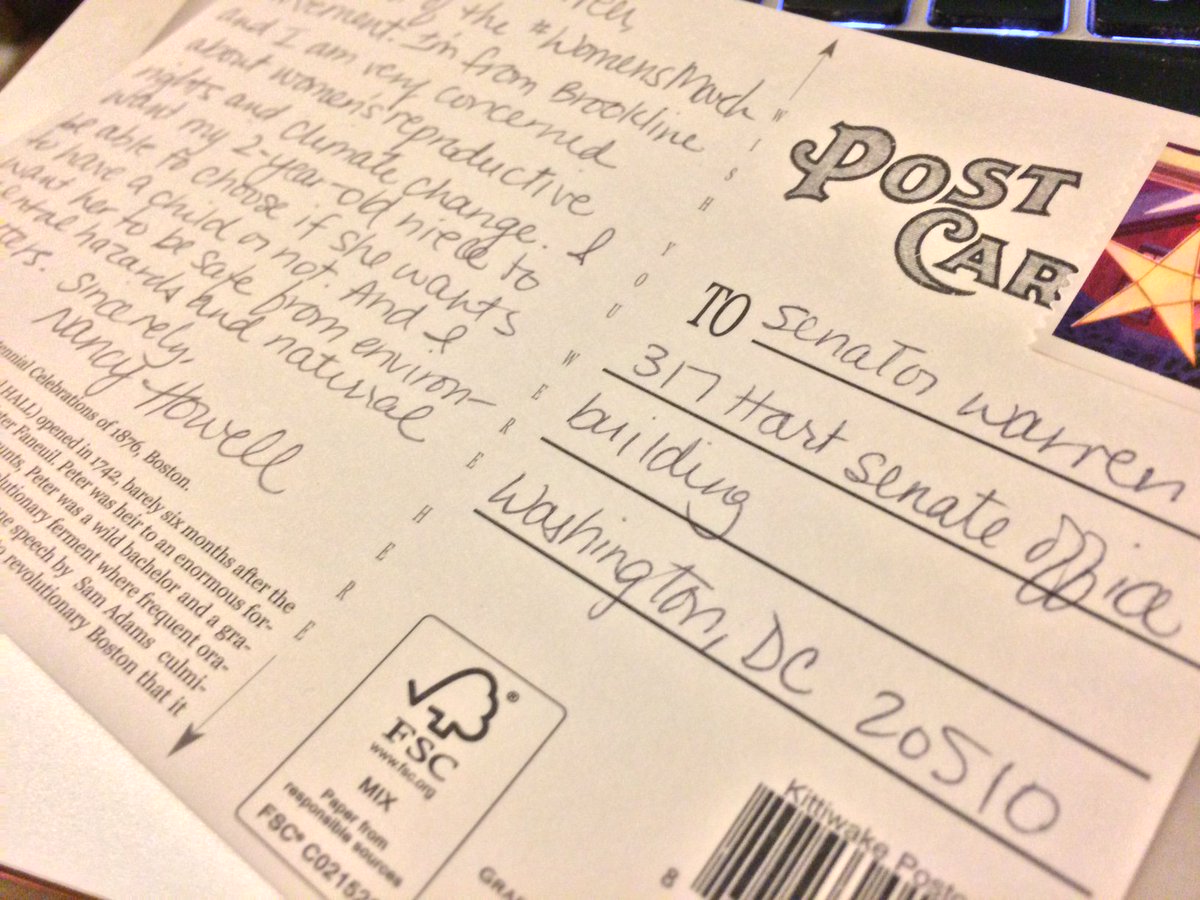 of the #WomensMarch
I'm from Brookline
and I am very concerned
about women's reproductive
rights and climate change. I
want my 2-year-old niece to
be able to choose if she wants
to have a child or not. And I
want her to be safe from environ-
mental hazards and natural
Sincerely,
Nancy Howell
Celebrations of 1876, Boston.
HALL) opened in 1742, barely six months after the
Faneuil. Peter was heir to an enormous for-
Peter was a wild bachelor and a gra-
ferment where frequent ora-
speech by Sam Adams culmi-
revolutionary Boston that it
WISH YOU WERE HERE
POST
CAR
TO Senator Warren
317 Hart senate office
building
Washington, DC 20510
FSC®
www.fsc.org
MIX
Paper from
responsible sources
FSC® C02152
Kittiwake
8